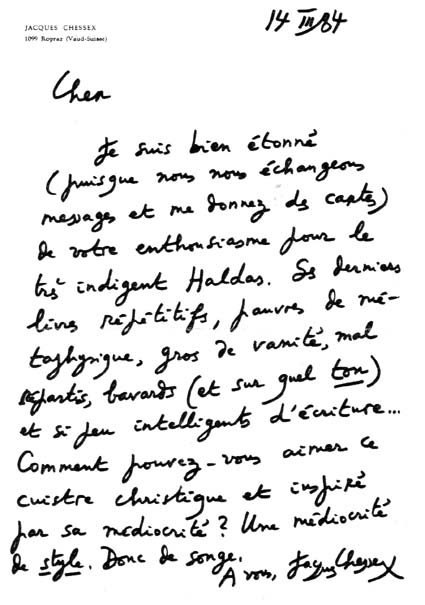 JACQUES CHESSEX
1099 Ropraz (Vaud-Suisse)
14 III 84
Cher
Je suis bien étonné
(puisque nous nous échangeons
messages et me donnez des cartes)
de votre enthousiasme pour le
très indigent Haldas. Ses derniers
livres répétitifs, pauvres de mé-
taphysique, gros de vanité, mal
répartis, bavards (et sur quel ton)
et si peu intelligents d'écriture...
Comment pouvez-vous aimer ce
cuistre christique et inspiré
par sa médiocrité ? Une médiocrité
de style. Donc de songe.
A vous, Jacques Chessex